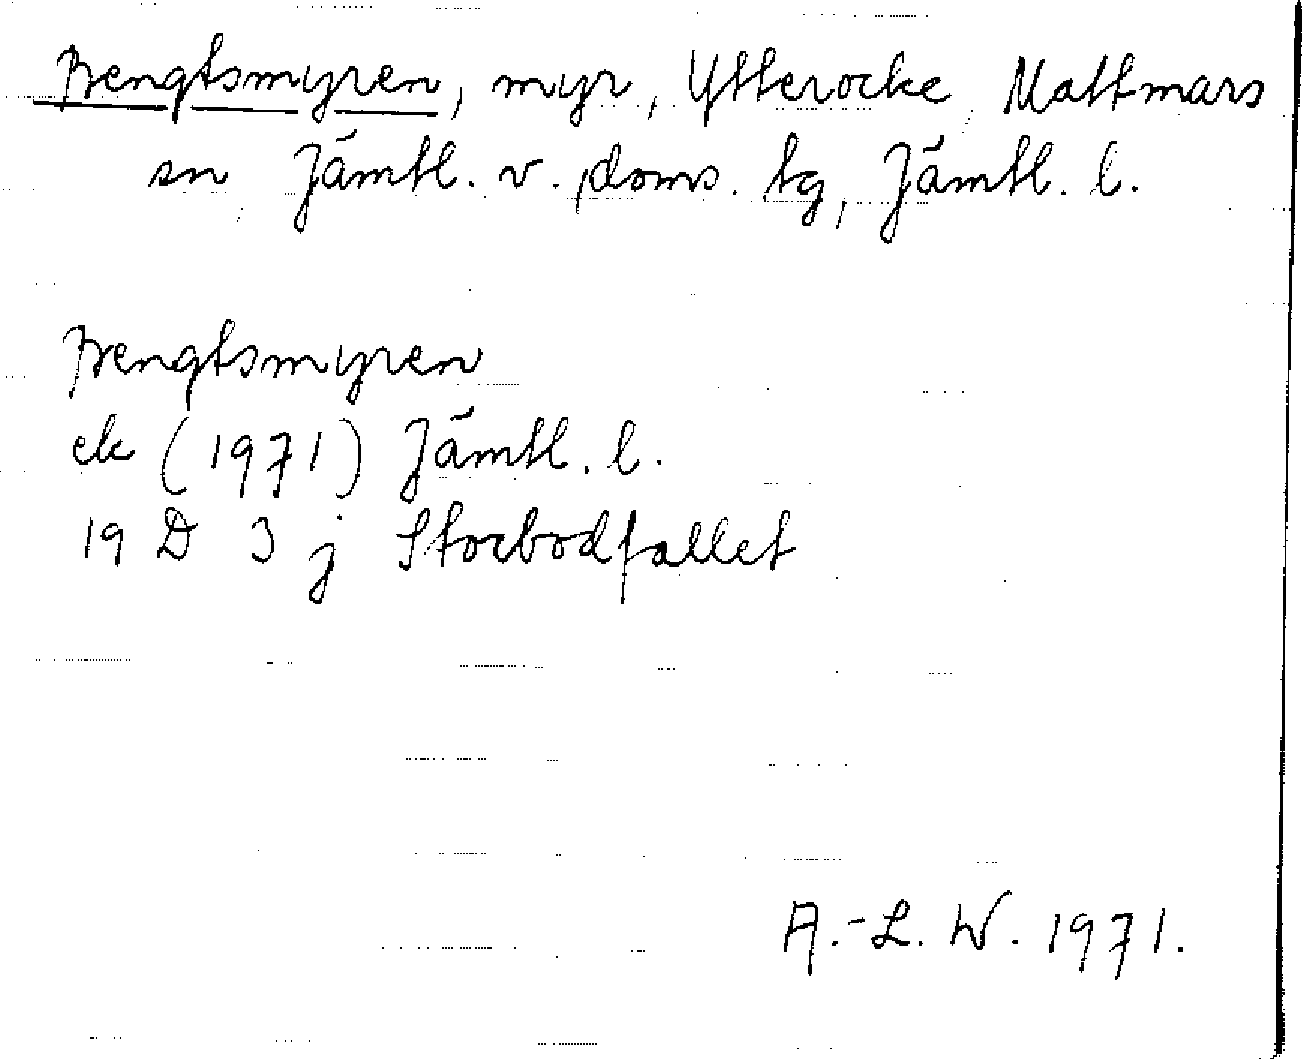 Bengtsmyren, myr, Ytterocke, Mattmars
sn, Jämtl. v. doms. tg, Jämtl. l.
Bengtsmyren
ek (1971) Jämtl. l.
19 D 3 j Storbodfallet
A.-L. W. 1971.